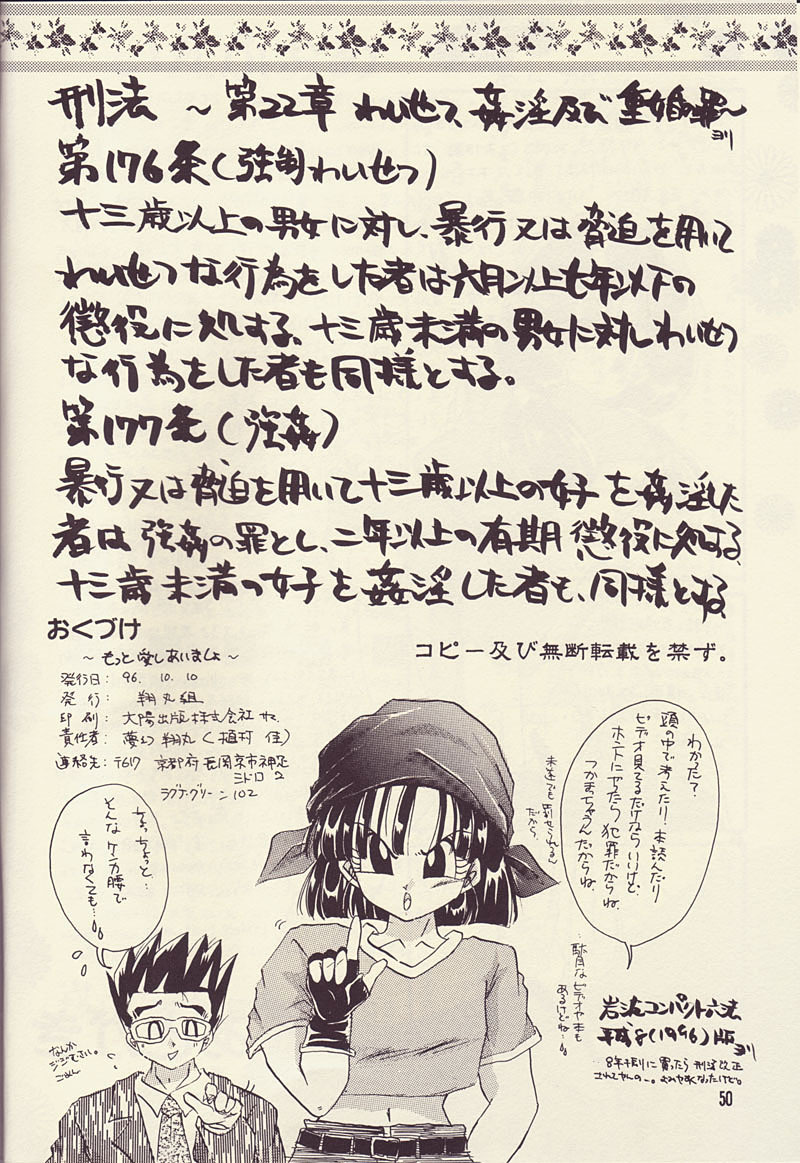 刑法 ～第22章 わいせつ、姦淫及び重婚の罪～
ヨリ
第176条(強制わいせつ)
十三歳以上の男女に対し、暴行又は脅迫を用いて
わいせつな行為をした者は六月以上七年以下の
懲役に処する、十三歳未満の男女に対しわいせつ
な行為をした者も同様とする。
第177条(強姦)
暴行又は脅迫を用いて十三歳以上の女子を姦淫した
者は強姦の罪とし、二年以上の有期懲役に処する、
十三歳未満の女子を姦淫した者も、同様とする
おくづけ
～もっと愛しあいましょ～
コピー及び無断転載を禁ず。
発行日: 96. 10. 10
発行: 翔丸組
印刷: 大陽出版株式会社 サマ
責任者: 夢幻 翔丸 (植村 佳)
連絡先: 〒617 京都府長岡京市神足
ミドロ 2
ラグナ・グリーン 102
わかった?
頭の中で考えたり、本読んだり
ビデオ見てるだけならいいけど、
ホントにやったら犯罪だからね
つかまっちゃうんだからね
未遂でも罰せられるん
だから。
駄目なビデオや本も
あるけどね…
ちょっちょっと…
そんなケンカ腰で
言わなくても…
なんか
ジジむさい。
ごめん
岩波コンパクト六法
平成8(1996)版
ヨリ
8年振りに買ったら刑法改正
されてやんのー。よみやすくなったけど。
50